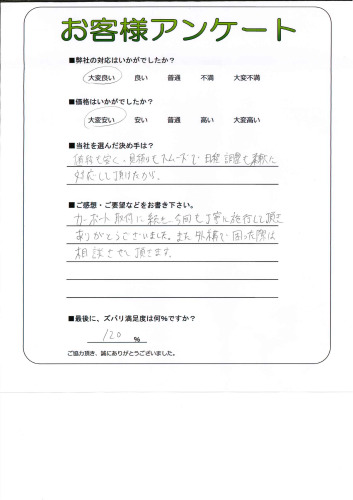 お客様アンケート
■弊社の対応はいかがでしたか?
大変良い 良い 普通 不満 大変不満
■価格はいかがでしたか?
大変安い 安い 普通 高い 大変高い
■当社を選んだ決め手は?
価格も安く、見積りもスムーズで日程調整も柔軟に
対応して頂けたから。
■ご感想・ご要望などをお書き下さい。
カーポート取付に続き、今回も丁寧に施行して頂き
ありがとうございました。また外構で困った際は
相談させて頂きます。
■最後に、ズバリ満足度は何%ですか?
120 %
ご協力頂き、誠にありがとうございました。